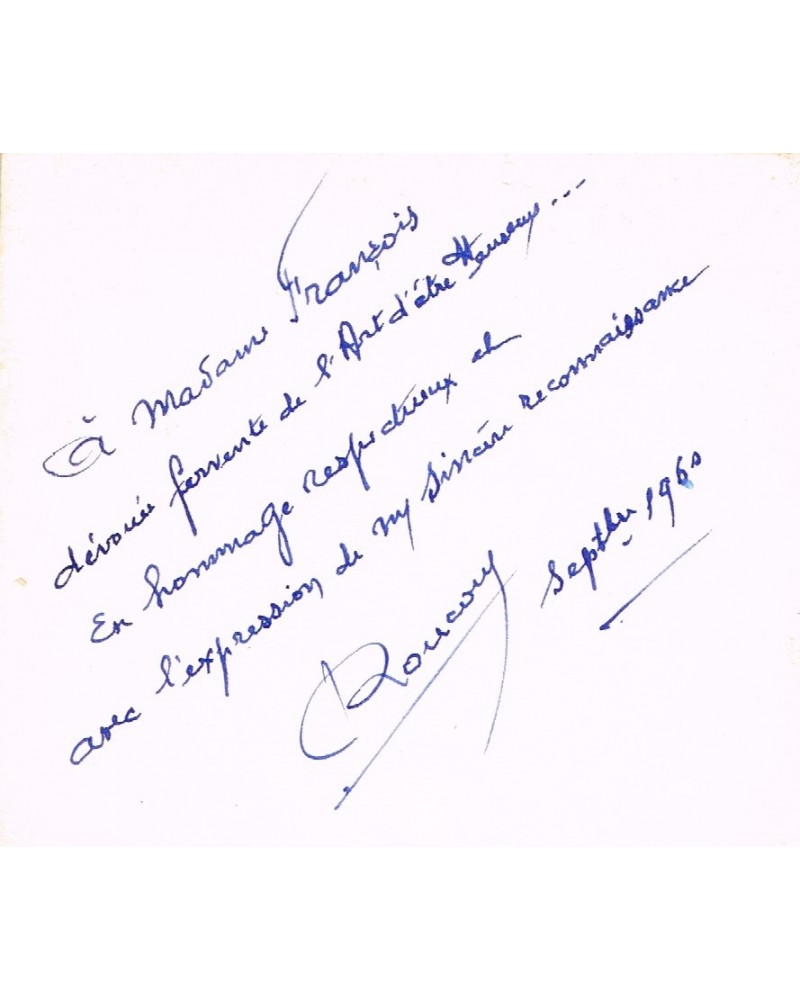 À Madame François
dévouée fervente de l'Art d'être Heureux...
En hommage respectueux et
avec l'expression de my sincère reconnaissance
Septbre 1960